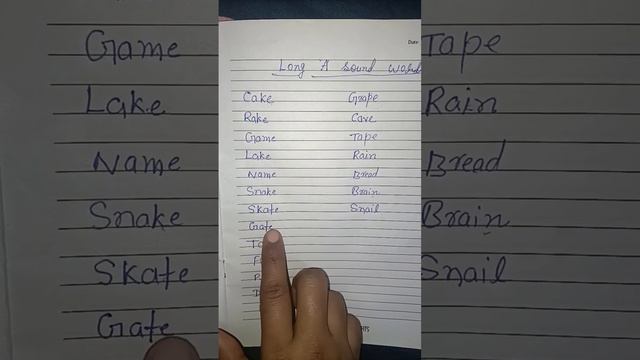 Game
Lake
Name
Snake
Skate
Gate
Date
Long "A" sound Word
Cake Grape
Rake Cave
Game Tape
Lake Rain
Name Bread
Snake Brain
Skate Snail
Gate
Tape
Rain
Bread
Brain
Snail